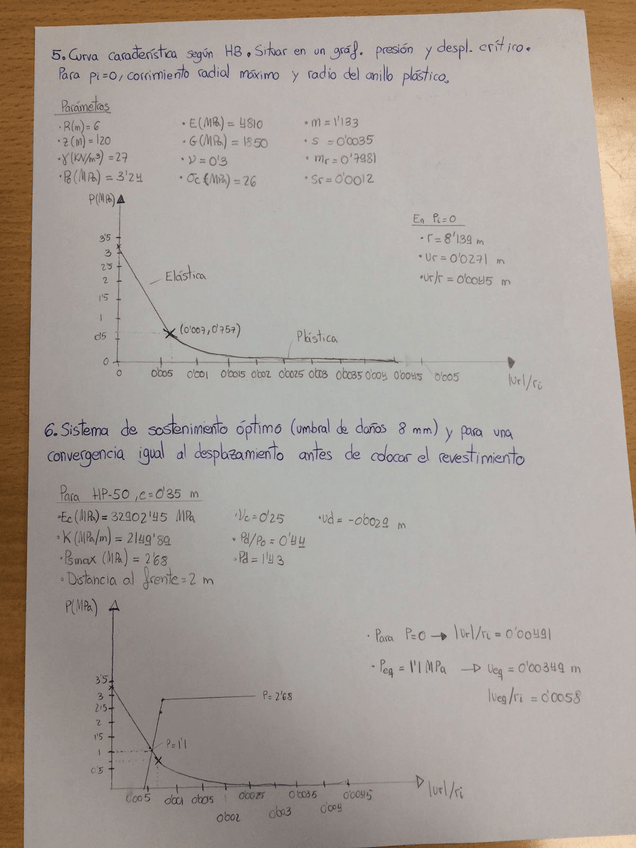 5. Curva característica según HB. Situar en un gráf. presión y despl. crítico.
Para pi=0, corrimiento radial máximo y radio del anillo plástico.
Parámetros
· R(m)=6
· z(m)=120
· γ(KN/m³)=27
· P0(MPa)=3'24
· E(MPa)=4810
· G(MPa)=1850
· ν=0'3
· σc(MPa)=26
· m=1'133
· s=0'0035
· mr=0'7981
· Sr=0'0012
P(MPa)
3'5
3
2'5
2
1'5
1
0'5
0
Elástica
(0'007, 0'757)
Plástica
0 0'005 0'001 0'0015 0'002 0'0025 0'003 0'0035 0'004 0'0045 0'005
|Ur|/ri
En Pi=0
· r=8'139 m
· Ur=0'0271 m
· ur/r=0'0045 m
6. Sistema de sostenimiento óptimo (umbral de daños 8 mm) y para una
convergencia igual al desplazamiento antes de colocar el revestimiento
Para HP-50, e=0'35 m
· Ec(MPa)=32902'45 MPa
· K(MPa/m)=2149'89
· Psmax(MPa)=2'68
· Distancia al frente=2 m
· νc=0'25
· Pd/Po=0'44
· Pd=1'43
· ud=-0'0029 m
P(MPa)
3'5
3
2'5
2
1'5
1
0'5
P=2'68
P=1'1
0'005 0'001 0'0015 0'002 0'0025 0'003 0'0035 0'004 0'0045
|ur|/ri
· Para P=0 → |ur|/ri=0'00491
· Peq=1'1 MPa → ueq=0'00349 m
|ueq/ri=0'0058